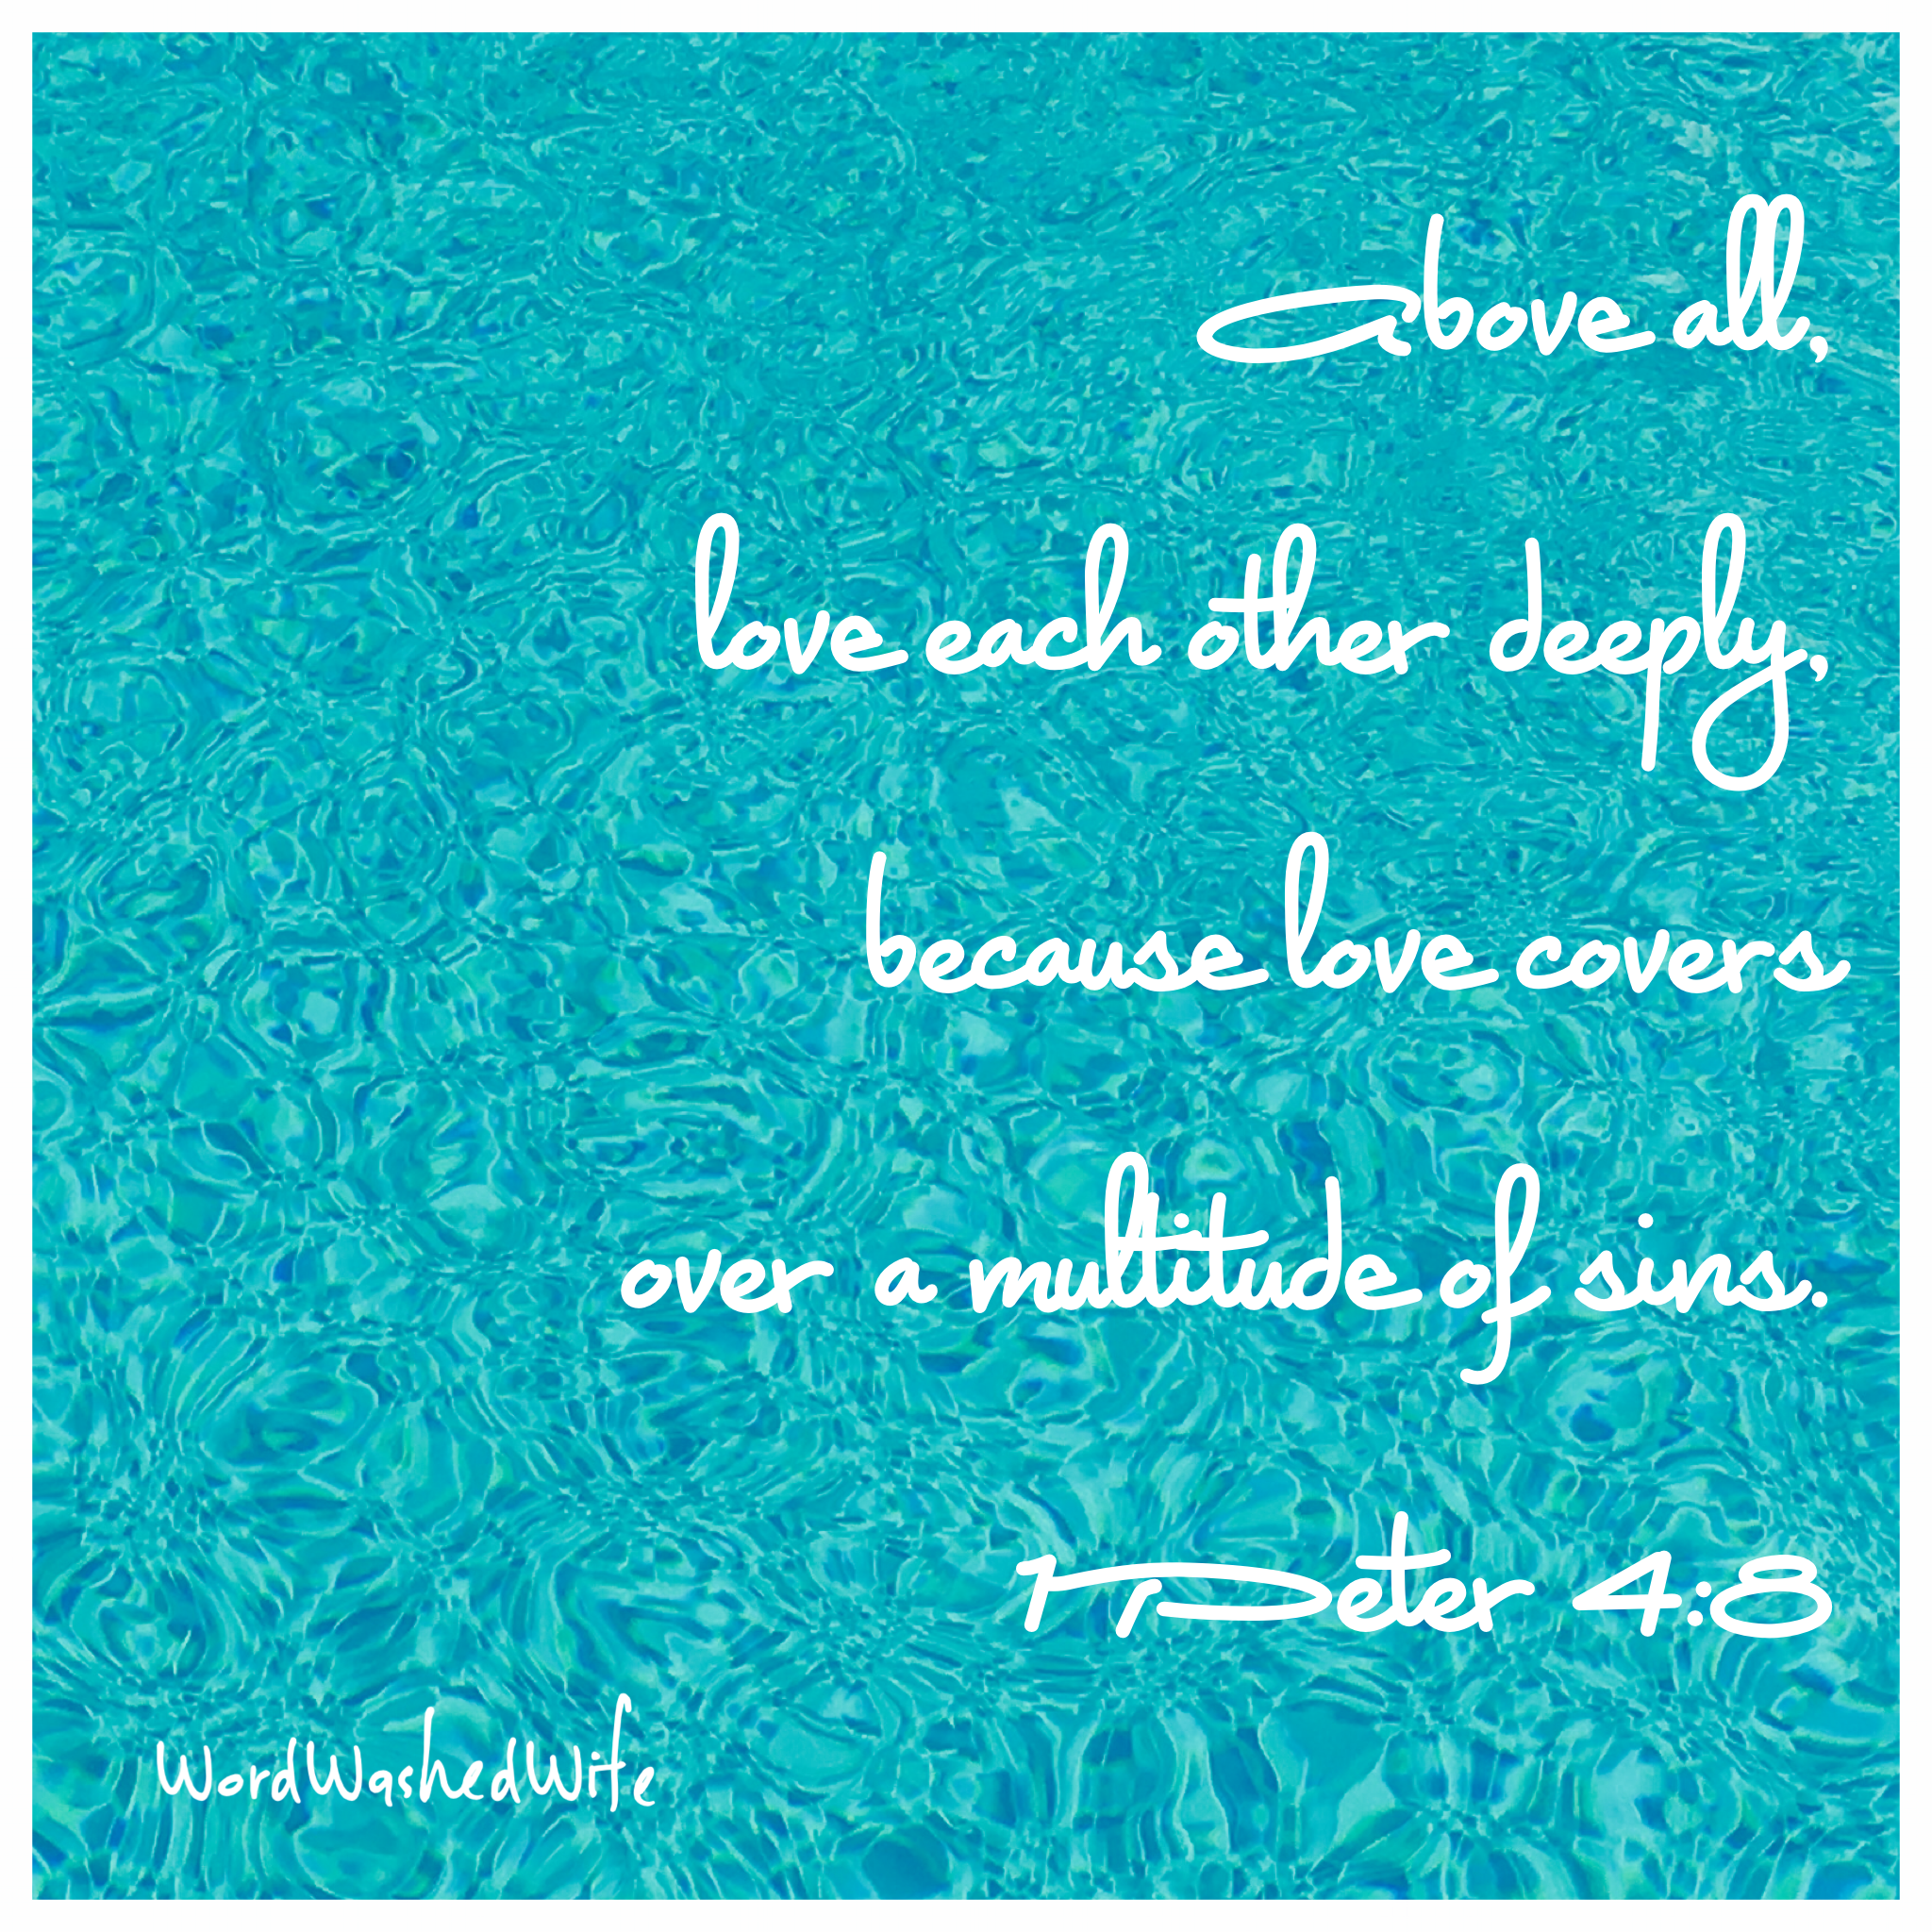 above all,
love each other deeply,
because love covers
over a multitude of sins.
1 Peter 4:8
WordWashedWife